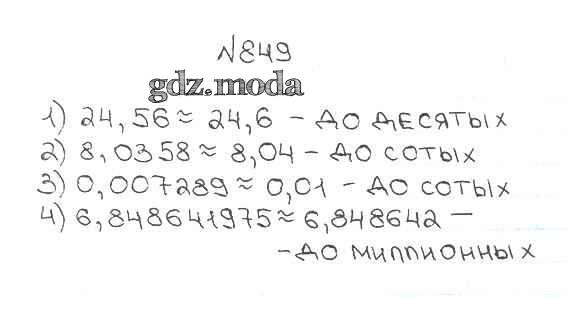 №849
gdz.moda
1) 24,56 ≈ 24,6 - до десятых
2) 8,0358 ≈ 8,04 - до сотых
3) 0,007289 ≈ 0,01 - до сотых
4) 6,848641975 ≈ 6,848642 -
- до миллионных